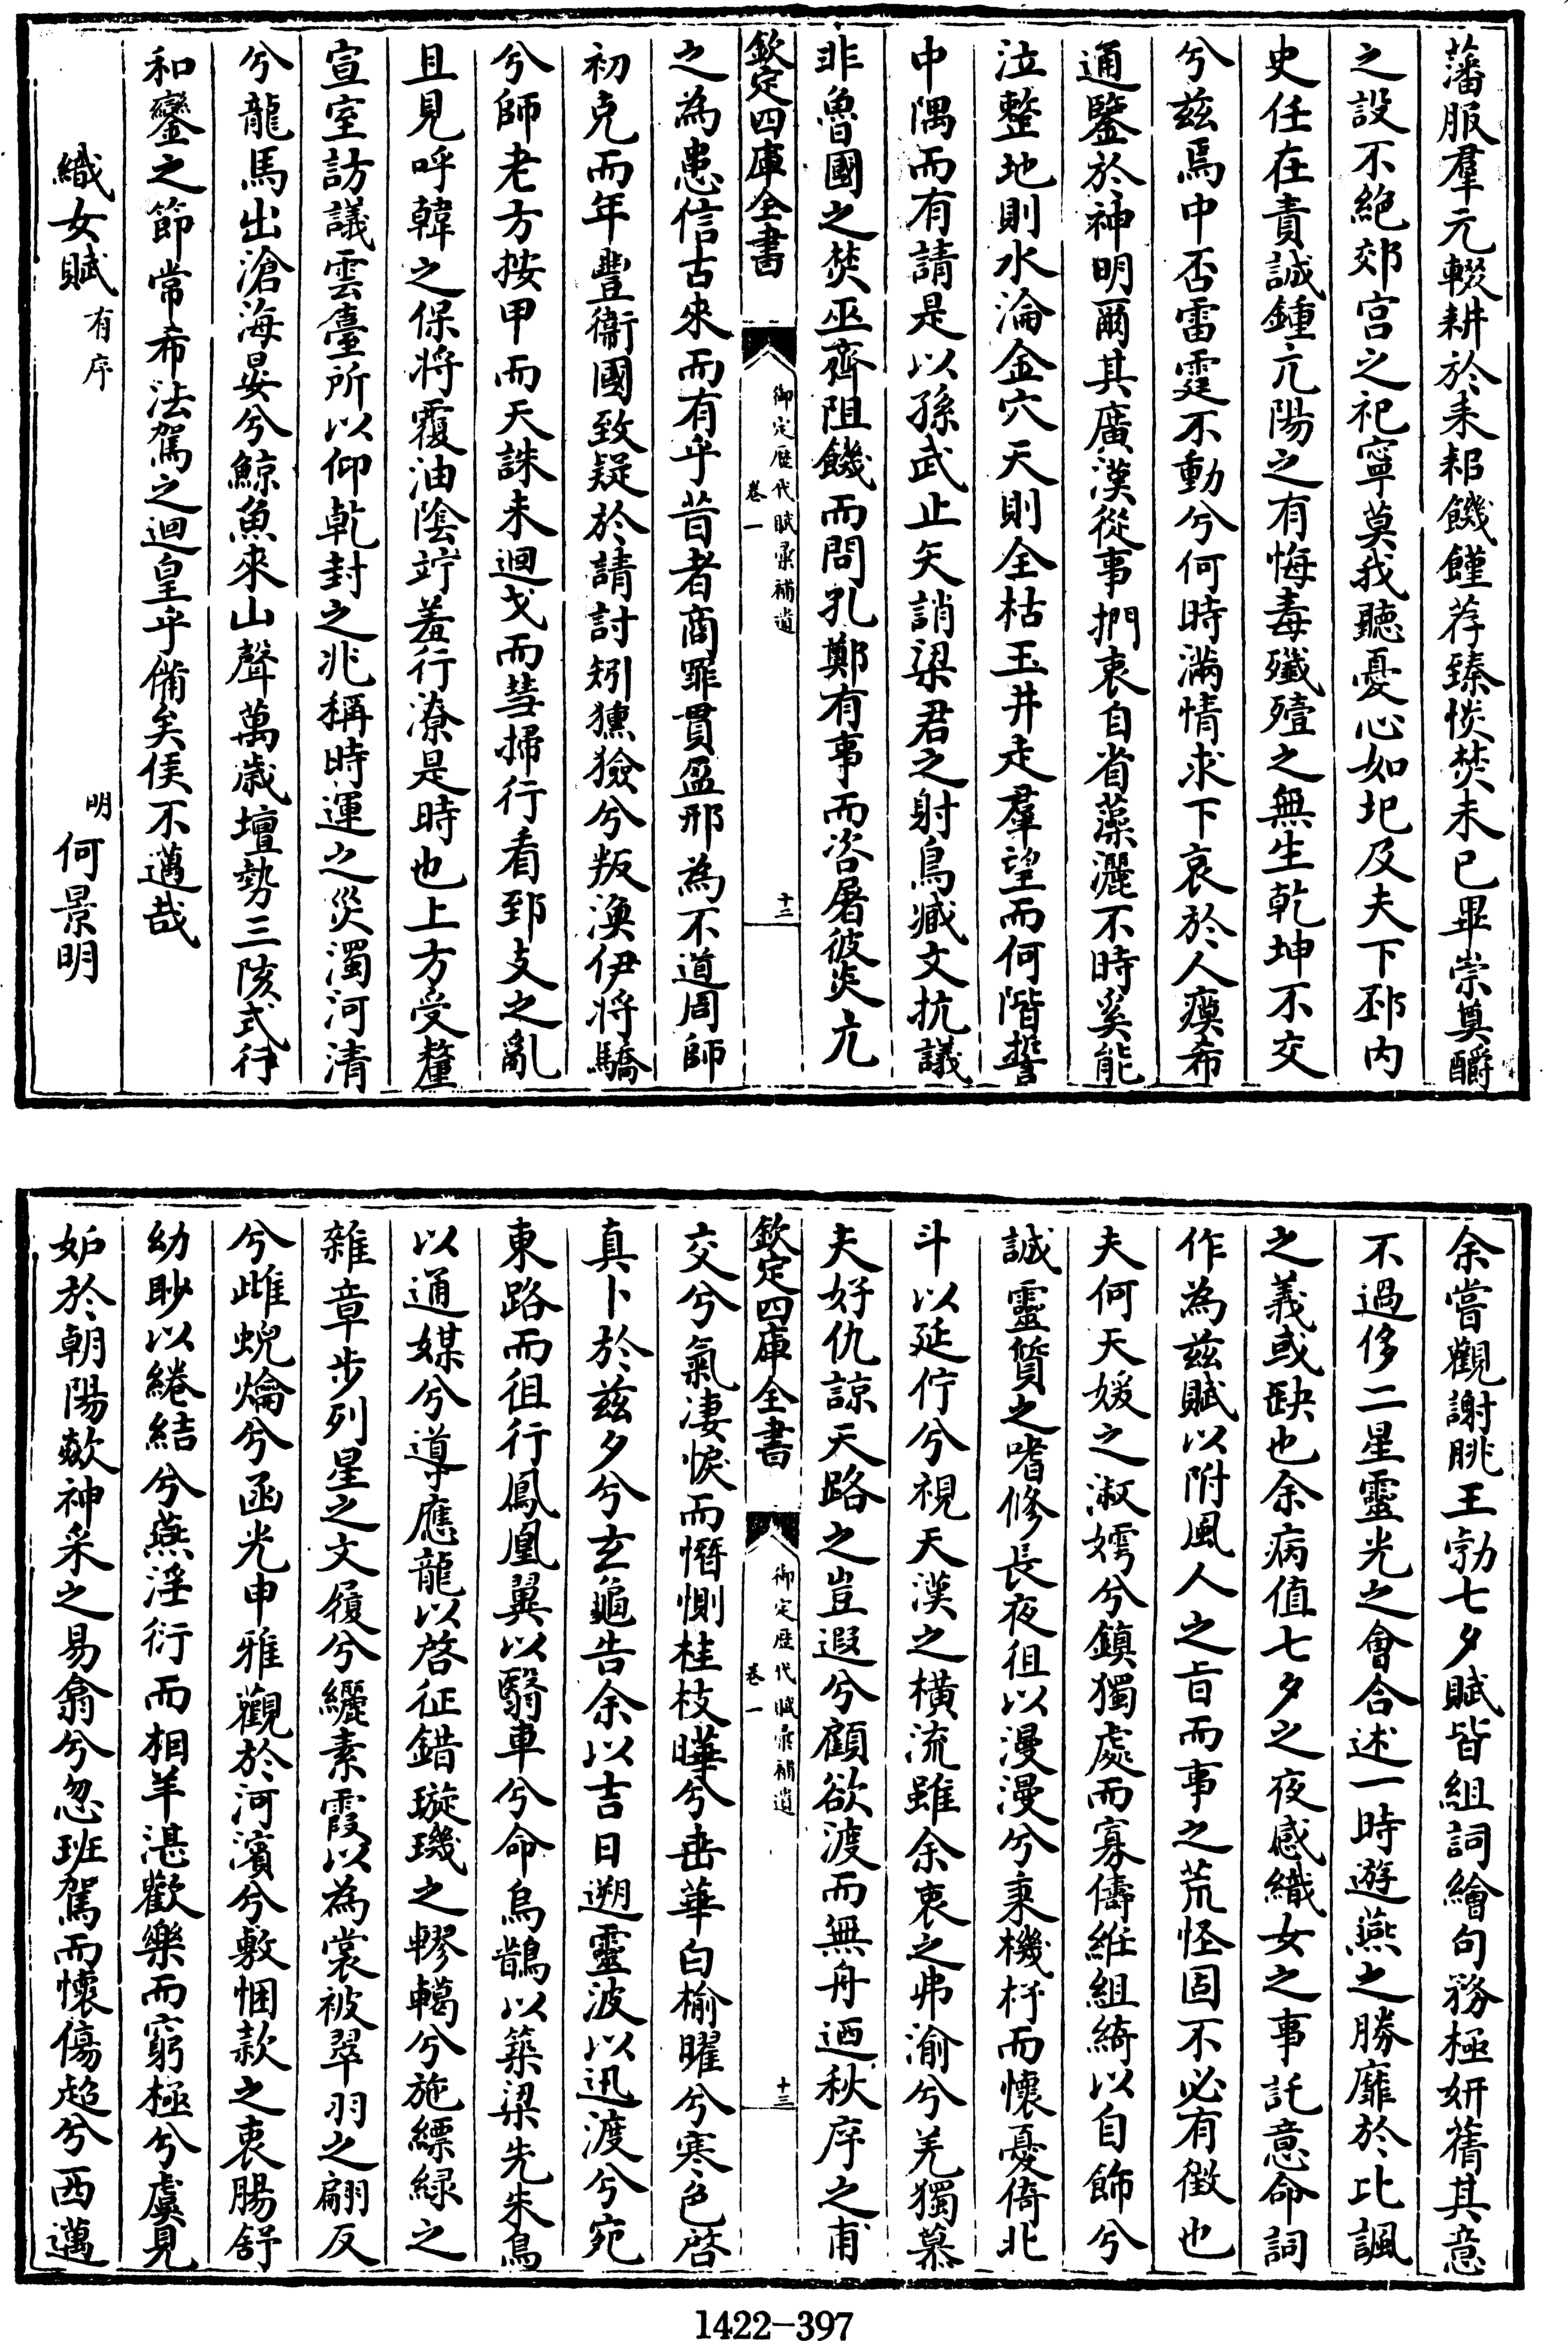 藩服羣元輟耕於耒耜饑饉荐臻惔焚未已畢崇奠酹
之設不絕郊宫之祀寧莫我聽憂心如圯及夫下邳内
史任在責誠鍾亢陽之有悔毒殲殪之無生乾坤不交
兮兹焉中否雷霆不動兮何時滿情求下哀於人瘼希
通鑒於神明爾其廣漢從事捫衷自省藻灑不時奚能
泣整地則水淪金穴天則全枯玉井走羣望而何階誓
中隅而有請是以孫武止矢誚梁君之射鳥臧文抗議
非魯國之焚巫齊阻饑而問孔鄭有事而咨屠彼炎亢
欽定四庫全書
御定歷代賦彚補遺
卷一
十二
之為患信古來而有乎昔者商罪貫盈邢為不道周師
初克而年豐衞國致疑於請討矧獯獫兮叛渙伊將驕
兮師老方按甲而天誅未迴戈而彗掃行看郅支之亂
且見呼韓之保將覆油陰竚羞行潦是時也上方受釐
宣室訪議雲臺所以仰乾封之兆稱時運之災濁河清
兮龍馬出滄海晏兮鯨魚來山聲萬歲壇勢三陔式行
和鑾之節常希法駕之迴皇乎備矣俟不邁哉
織女賦有序
明
何景明
余嘗觀謝朓王勃七夕賦皆組詞繪句務極妍蒨其意
不過侈二星靈光之會合述一時遊燕之勝靡於比諷
之義或缺也余病值七夕之夜感織女之事託意命詞
作為兹賦以附風人之旨而事之荒怪固不必有徵也
夫何天媛之淑嫮兮鎮獨處而寡儔維組綺以自飾兮
誠靈質之嗜修長夜徂以漫漫兮秉機杼而懷憂倚北
斗以延佇兮視天漢之橫流雖余衷之弗渝兮羌獨慕
夫好仇諒天路之豈遐兮顧欲渡而無舟迺秋序之甫
欽定四庫全書
御定歷代賦彚補遺
卷一
十三
交兮氣凄悷而憯惻桂枝曄兮垂華白榆曜兮寒色啓
真卜於兹夕兮玄龜告余以吉日遡靈波以迅渡兮宛
東路而徂行鳳凰翼以翳車兮命烏鵲以築梁先朱鳥
以通媒兮導應龍以啓征錯璇璣之轇轕兮施縹緑之
雜章步列星之文履兮纚素霞以為裳被翠羽之翩反
兮雌蜺爚兮函光申雅觀於河濱兮敷悃款之衷腸舒
幼眇以綣結兮燕淫衍而相羊湛歡樂而窮極兮虞見
妒於朝陽歘神采之易翕兮忽班駕而懷傷趂兮西邁
1422-397